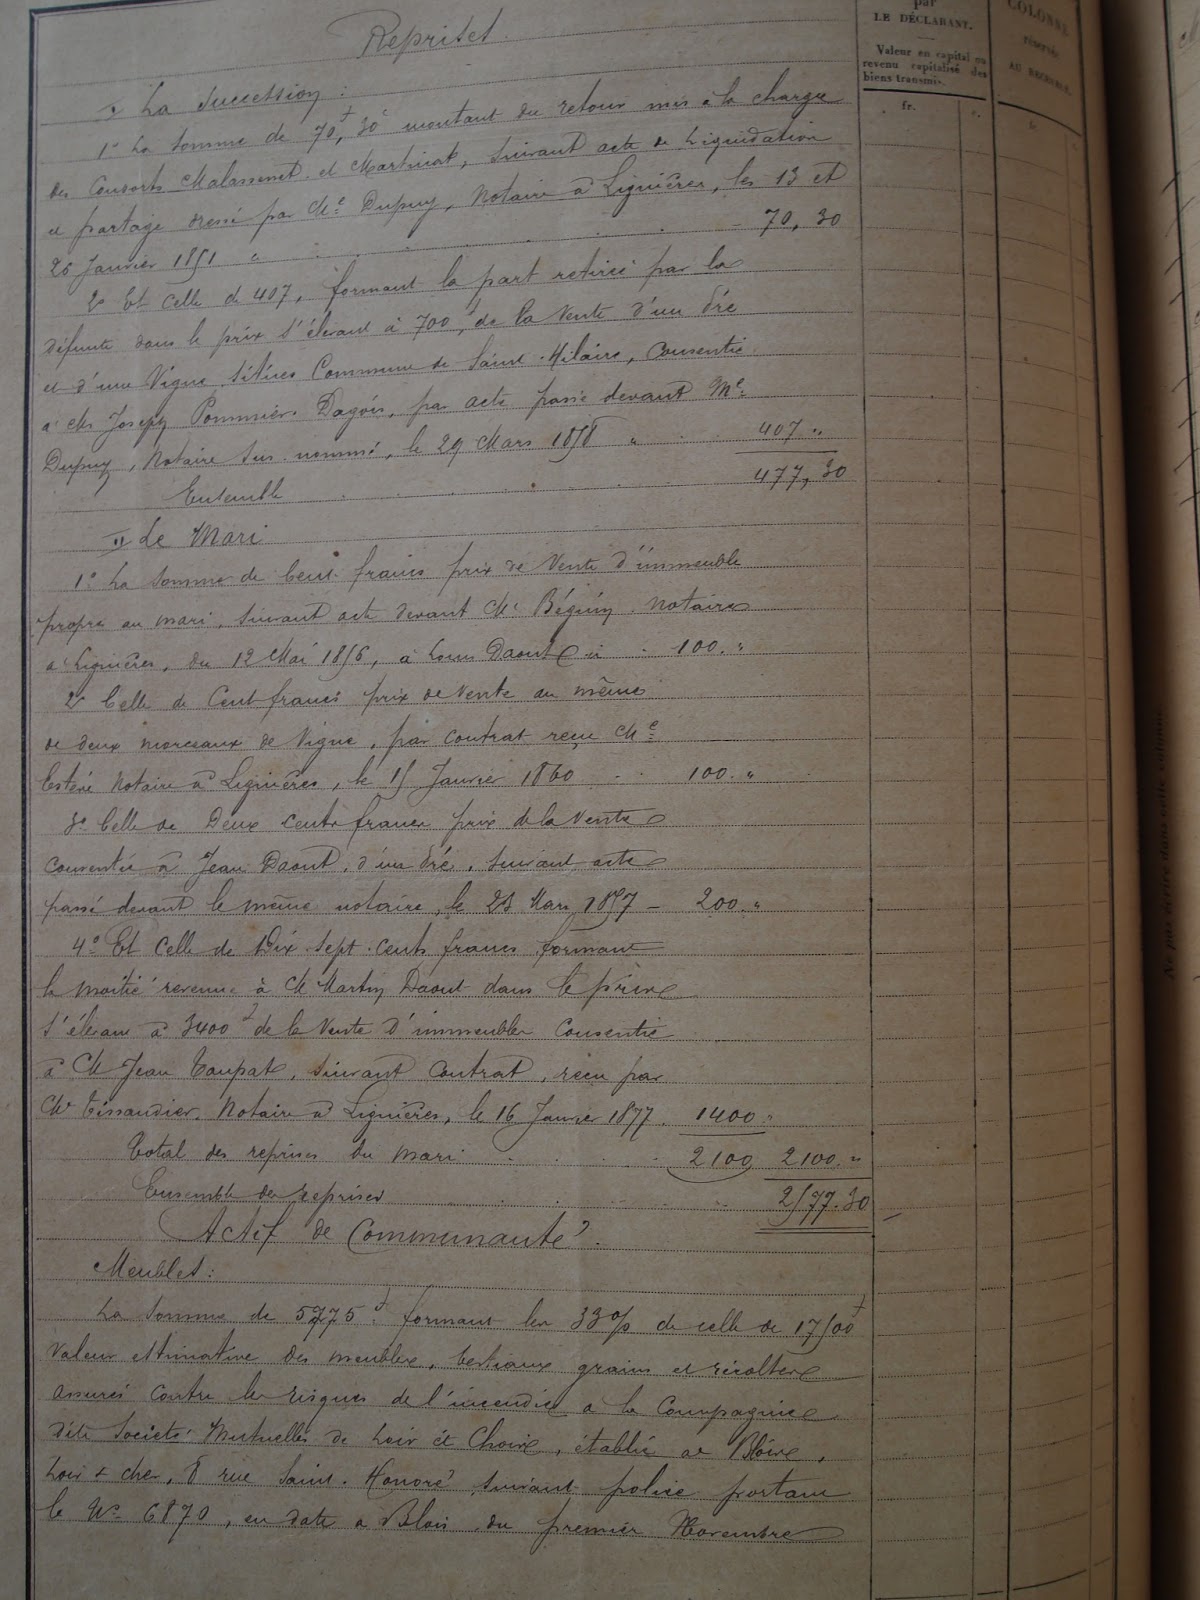 Reprises.
I La Succession :
1° La somme de 70f, 30c montant du retour mis à la charge
des Consorts Malassenet et Martinat, suivant acte de liquidation
et partage dressé par Me Dupuy, Notaire à Lignières, les 13 et
26 Janvier 1851 " . . . . . . 70, 30
2° Et celle de 407, formant la part retirée par la
défunte dans le prix s'élevant à 700f, de la vente d'un Pré
et d'une Vigne, sitires Commune de Saint-Hilaire, consentie
à M. Joseph Pommier Dagois, par acte passé devant Me
Dupuy, Notaire sus-nommé, le 29 Mars 1858 " . . 407 "
Ensemble . . . . . . . 477, 30
II Le Mari
1° La somme de Cent francs prix de Vente d'immeuble
propre au mari, suivant acte devant Me Béguin Notaire
à Lignières, du 12 Mai 1856, à Louis Daout ci . 100. "
2° Celle de Cent francs prix de Vente au même
de deux morceaux de Vigne, par contrat reçu Me
Notaire à Lignières, le 15 Janvier 1860 . . 100. "
3° Celle de Deux cents francs prix de la Vente
consentie à Jean Daout, d'un Pré, suivant acte
passé devant le même notaire, le 23 Mars 1857 — 200. "
4° Et celle de Dix-sept-cents francs formant
la moitié revenue à M Martin Daout dans le prix
s'élevant à 3400f de la Vente d'immeubles consentie
à M Jean Toupat, suivant contrat, reçu par
Me Tissandier, Notaire à Lignières, le 16 Janvier 1877. 1400 "
Total des reprises du mari . . . . 2100 2100. "
Ensemble des reprises . . . . 2577.30
Actif de Communauté.
Meubles :
La somme de 5775f. formant les 33% de celle de 17500f
Valeur estimative des meubles, bestiaux grains et récoltes
assurés contre les risques de l'incendie à la Compagnie
dite Société Mutuelle de Loir et Cher, établie à Blois,
Loir & Cher, 8 rue Saint-Honoré suivant police portant
le No 6870, en date à Blois du premier Novembre
par
LE DÉCLARANT.
Valeur en capital ou
revenu capitalisé des
biens transmis.
fr. c.
COLONNE
réservée
AU RECEVEUR.
fr.
Ne pas écrire dans cette colonne